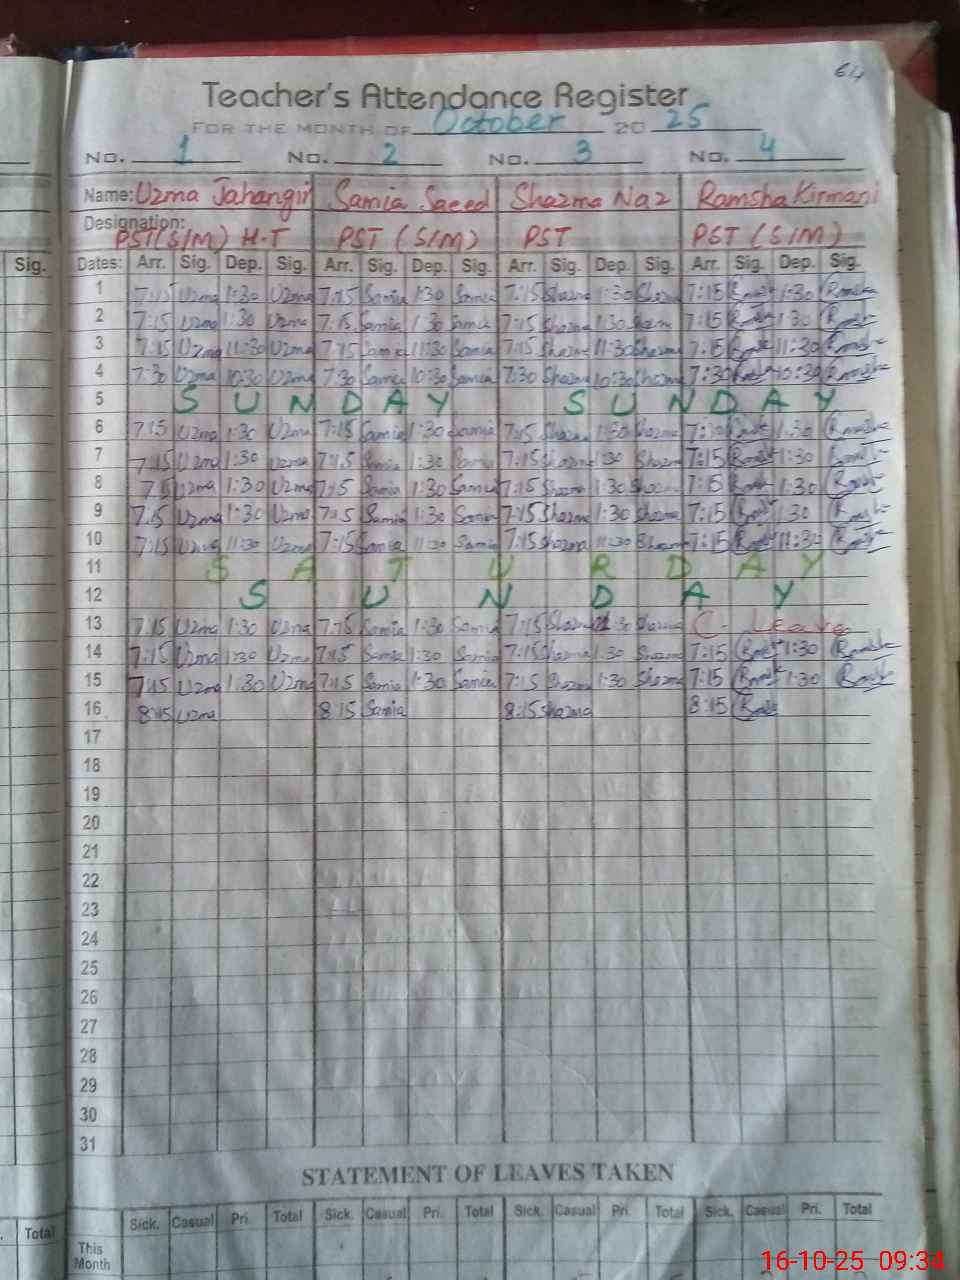 64
Teacher's Attendance Register
FOR THE MONTH OF October 2025
No. 1 No. 2 No. 3 No. 4
Name: Uzma Jahangir Samia Saeed Shazma Naz Ramsha Kirmani
Designation:
PST (S/M) H.T PST (S/M) PST PST (S/M)
Sig. Dates: Arr. Sig. Dep. Sig. Arr. Sig. Dep. Sig. Arr. Sig. Dep. Sig. Arr. Sig. Dep. Sig.
1 7:15 Uzma 1:30 Uzma 7:15 Samia 1:30 Samia 7:15 Shazma 1:30 Shazma 7:15 Ramsha 1:30 Ramsha
2 7:15 Uzma 1:30 Uzma 7:15 Samia 1:30 Samia 7:15 Shazma 1:30 Shazma 7:15 Ramsha 1:30 Ramsha
3 7:15 Uzma 11:30 Uzma 7:15 Samia 11:30 Samia 7:15 Shazma 11:30 Shazma 7:15 Ramsha 11:30 Ramsha
4 7:30 Uzma 10:30 Uzma 7:30 Samia 10:30 Samia 7:30 Shazma 10:30 Shazma 7:30 Ramsha 10:30 Ramsha
5 SUNDAY SUNDAY
6 7:15 Uzma 1:30 Uzma 7:15 Samia 1:30 Samia 7:15 Shazma 1:30 Shazma Ramsha 1:30 Ramsha
7 7:15 Uzma 1:30 Uzma 7:15 Samia 1:30 Samia 7:15 Shazma 1:30 Shazma 7:15 Ramsha 1:30 Ramsha
8 Uzma 1:30 Uzma 7:15 Samia 1:30 Samia 7:15 Shazma 1:30 Shazma 7:15 Ramsha 1:30 Ramsha
9 7:15 Uzma 1:30 Uzma 7:15 Samia 1:30 Samia 7:15 Shazma 1:30 Shazma 7:15 Ramsha 1:30 Ramsha
10 7:15 Uzma 11:30 Uzma 7:15 Samia 11:30 Samia 7:15 Shazma 11:30 Shazma 7:15 Ramsha 11:30 Ramsha
11 SATURDAY
12 SUNDAY
13 7:15 Uzma 1:30 Uzma 7:15 Samia 1:30 Samia 7:15 Shazma 1:30 Shazma C. Leave
14 7:15 Uzma 1:30 Uzma 7:15 Samia 1:30 Samia 7:15 Shazma 1:30 Shazma 7:15 Ramsha 1:30 Ramsha
15 7:15 Uzma 1:30 Uzma 7:15 Samia 1:30 Samia 7:15 Shazma 1:30 Shazma 7:15 Ramsha 1:30 Ramsha
16 8:15 Uzma 8:15 Samia 8:15 Shazma 8:15 Ramsha
17
18
19
20
21
22
23
24
25
26
27
28
29
30
31
STATEMENT OF LEAVES TAKEN
Total Sick. Casual Pri. Total Sick. Casual Pri. Total Sick. Casual Pri. Total Sick. Casual Pri. Total
This
Month
16-10-25 09:34